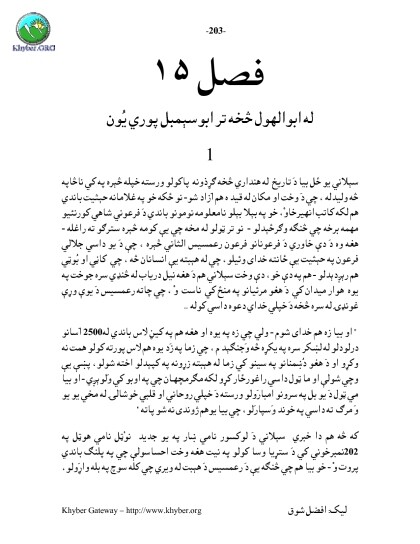 -203-
Khyber.ORG
فصل ۱۵
له ابوالهول څخه تر ابو سېمبل پورې يُون
1
سپلانې يو ځل بيا دَ تاريخ له هندارې څخه ګردونه پاکولو ورسته خپله څېره په کې ناڅاپه
څه وليدله . چې دَ وخت او مکان له قيد ، هم آزاد شو- نو ځکه خو په غلامانه حېثيت باندې
هم لکه کاتب انتهيرخاوْ، خو په بېلا بېلو نامعلومه نومونو باندې دَ فرعونې شاهې کورنئيو
مهمه برخه چې څنګه وګرځېدلو - نو تر ټولو له مخه چې کې مهمه څېره سترګو ته راغله-
هغه وهَ دَ دې خاورې دَ فرعونانو فرعون رعمسيس الثاني څېره ، چې دَ يو داسې جلالي
فرعون په حېثيت يې ځانته خداى وئيلو . چې له هېبته يې انسانان څه ، چې کاڼې او بُوټې
هم رېږدېدلو- هم په دې خو ، دې وخت سپلانې هم دَ هغه نيل درياب له څنډې سره جوخت په
يوه هوار ميدان کې دَ هغو مرئيانو په منځ کې ناست وْ ، چې چاته رعمسيس دَ يوې ورې
غونډۍ له سره څخه دَ خپلې خداى دعوه داسې کوله ..
" او بيا زه هم خداى شوم- ولې چې زه په يوه او هغه هم په کيڼ لاس باندې له2500 آسانو
درلودلو له لښکر سره په يکړه څه وَجنګېد م . چې زما په زړه يوه هم لاس پورته کولو همت نه
وکړو او دَ هغو دُښمنانو په سينو کې زما له هېبته زړونه په کېپدلو اخته شولو . پښې يې
وچې شولې او ما ټول داسې راغورځار کړو لکه مګرمچهان چې په اوبو کې ولوېږې- او بيا
مې ټول دَ يو بل په سرونو امبارولو ورسته دَ خپلې روحانې او قلبې خوشالۍ له مخې يو يو
وَ مرګ ته داسې په خوند وَسپارلو ، چې بيا يو هم ژوندى نه شو پاته "
که څه هم دا خبرې سپلانې دَ لوکسور نامې ښار په يو جديد نوټل نامې هوټل په
202نمبرخونې کې دَ ستړيا وسا کولو په نيت هغه وخت احساسولې چې په پلنګ باندې
پروت وْ - خو بيا هم چې څنګه يې دَ رعمسيس دَ هېبت له وېرې چې کله سوچ په بله واړولو .
Khyber Gateway – http://www.khyber.org
ليک: افضل شوق